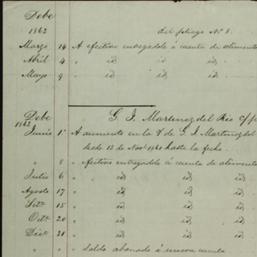 Debe
1862 del foliage Nº 8.
Marzo 14 A efectivo entregado á cuenta de alimento
Abril 4 " id, id,
Mayo 9 " id, id,
Debe G. J. Martinez del Rio c/
1862
Junio 1º A aumento en la de G. J. Martinez del
desde 13 de Novº 1861 hasta la fecha
" 8 " efectivo entregado á cuenta de alimento
Julio 6 " id, id,
Agosto 17 " id, id,
Setº 15 " id, id,
Octº 20 " id, id,
Dicº 31 " id, id,
" " " Saldo abonado á nueva cuenta